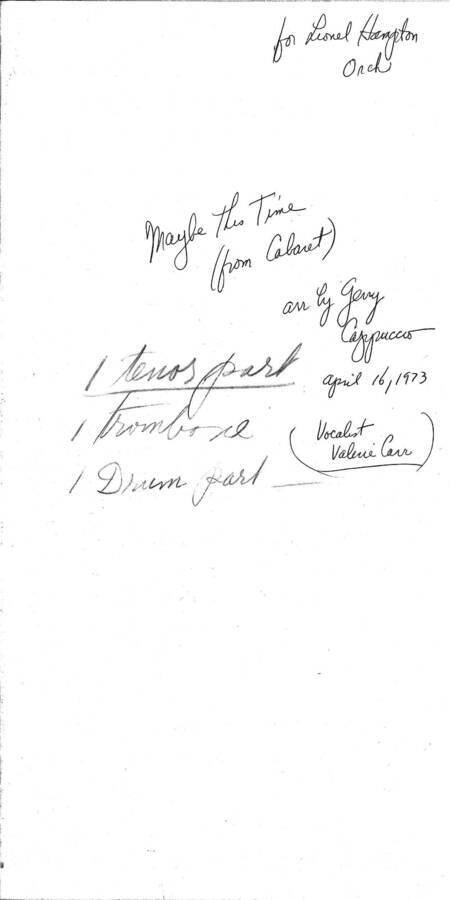 for Lionel Hampton
Orch
Maybe This Time
(from Cabaret)
arr by Gerry
Cappuccio
1 tenor part
april 16, 1973
1 trombone
(Vocalist
Valerie Carr)
1 Drum part